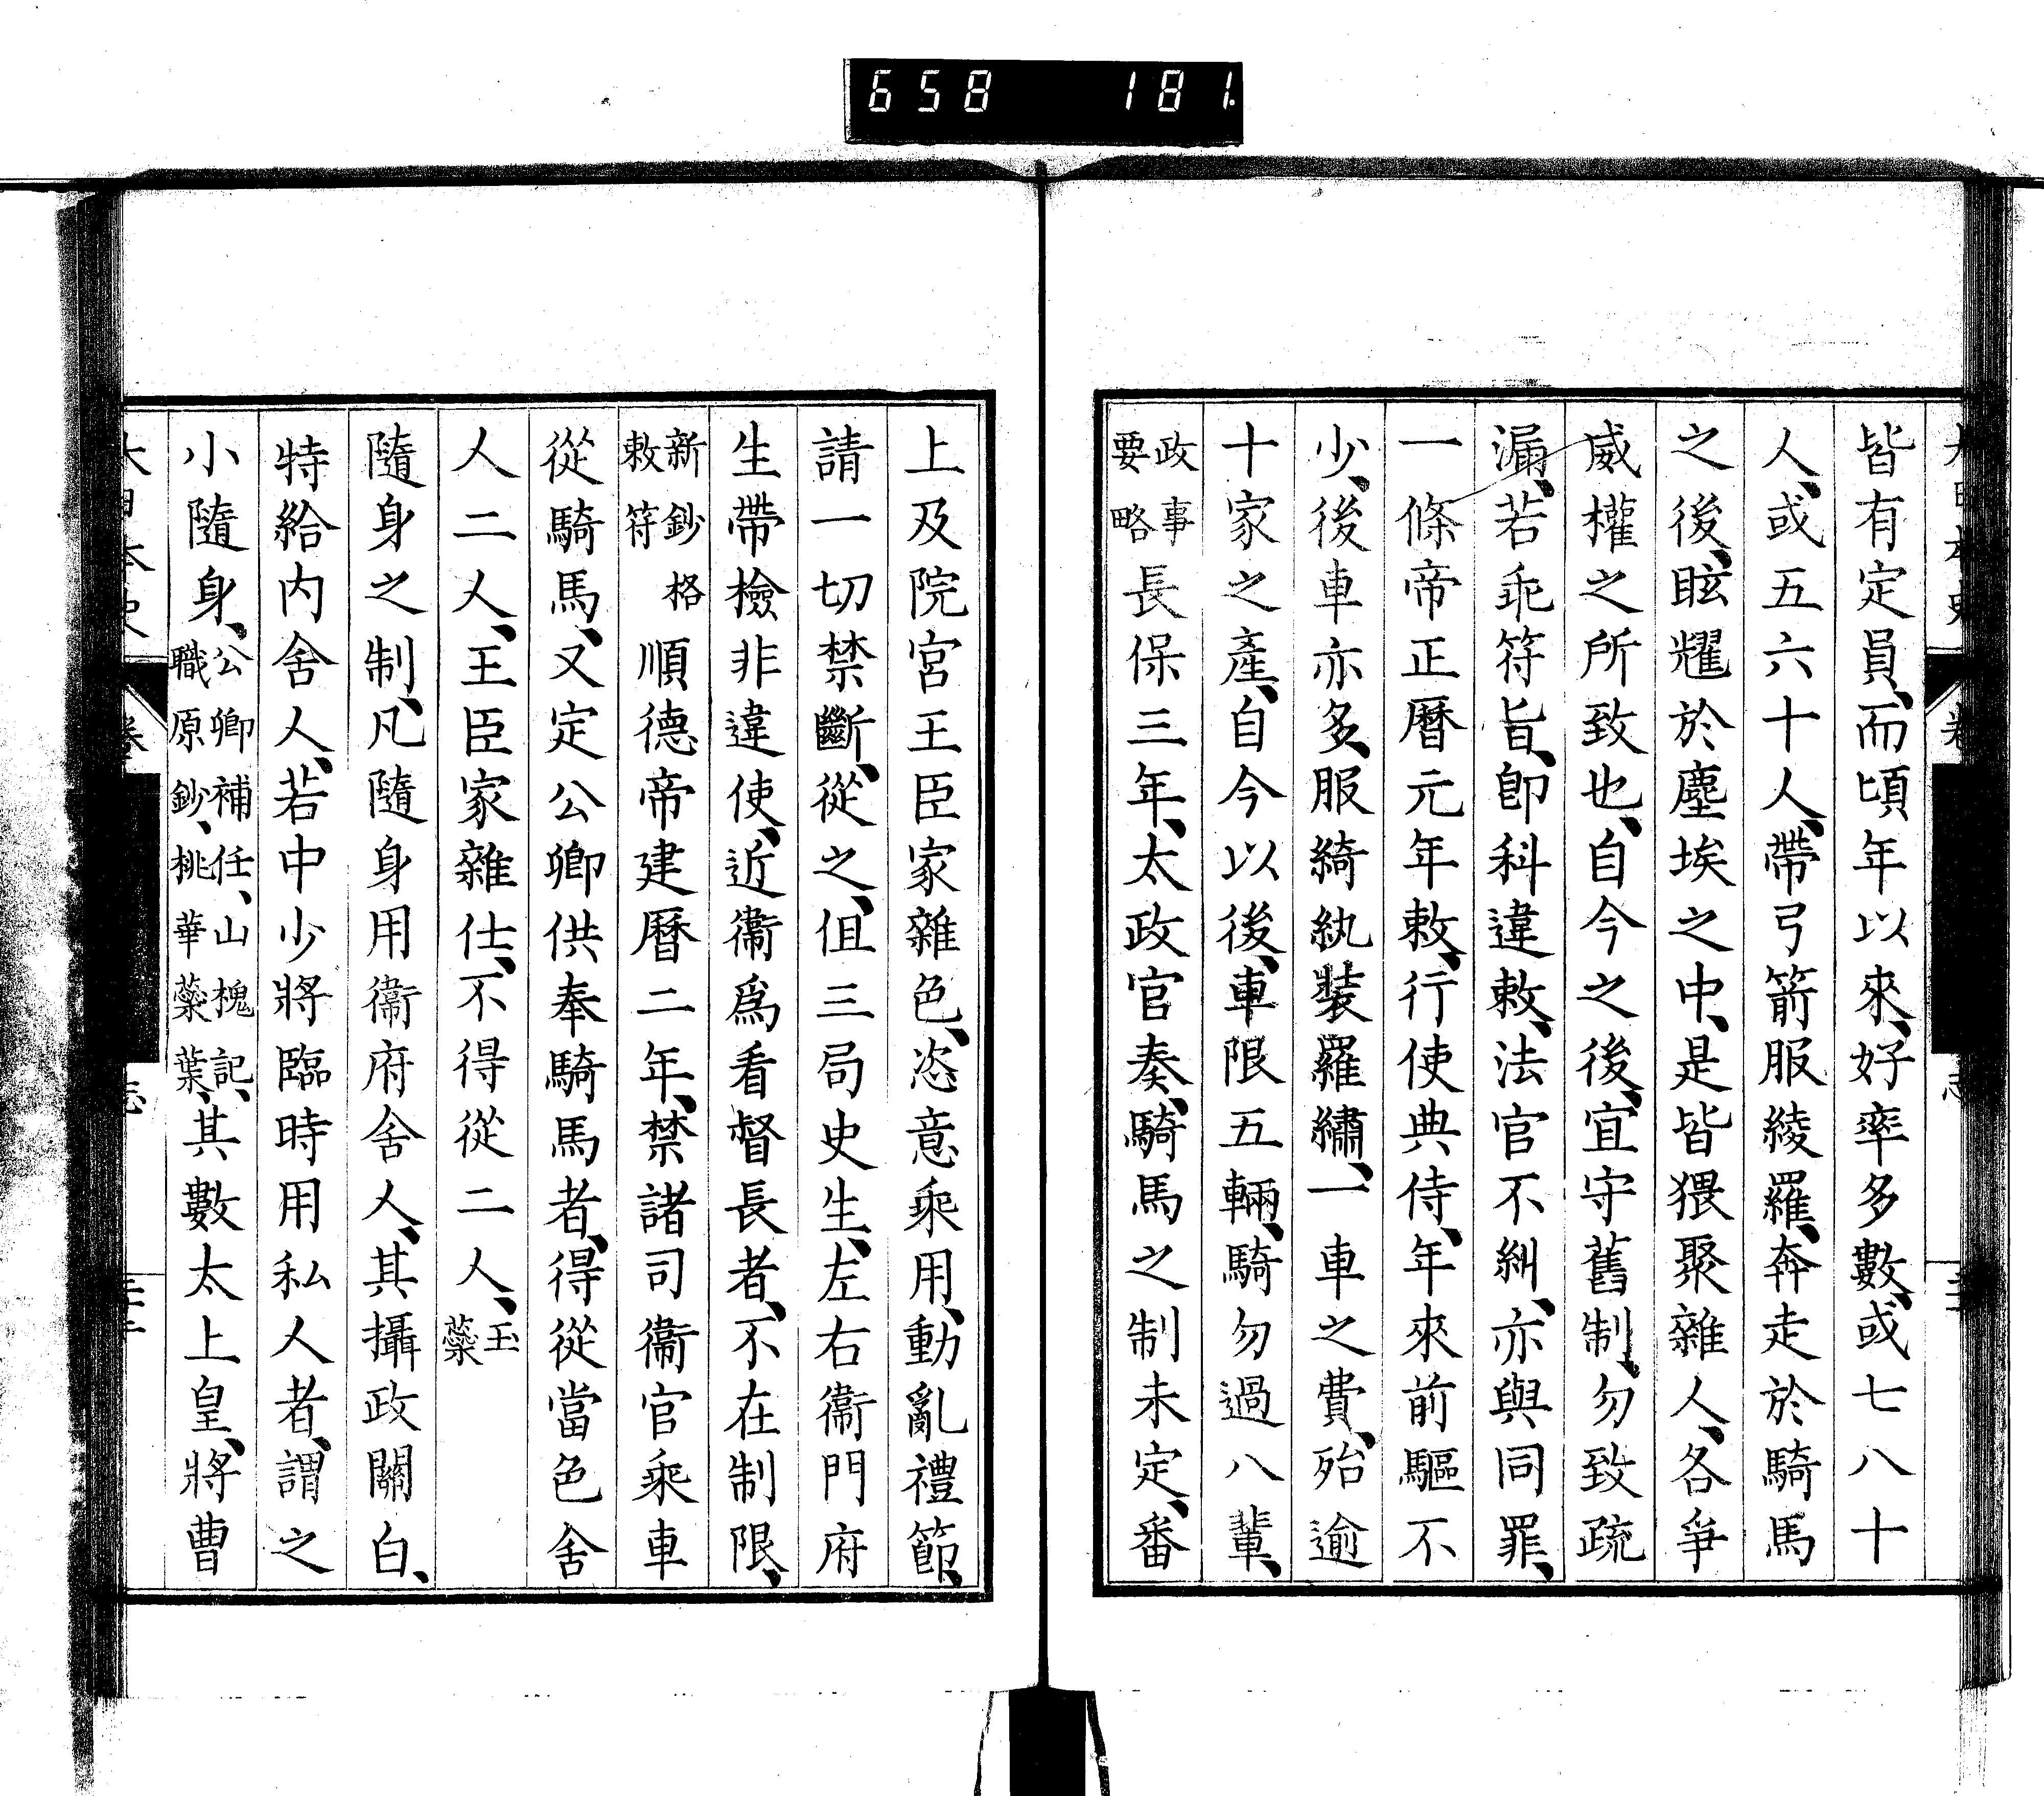 658 181.
皆有定員、而頃年以來、好率多數、或七八十
人、或五六十人、帶弓箭服綾羅、奔走於騎馬
之後、眩耀於塵埃之中、是皆猥聚雜人、各爭
威權之所致也、自今之後、宜守舊制、勿致疏
漏、若乖符旨、卽科違敕、法官不糾、亦與同罪、
一條帝正曆元年敕、行使典侍、年來前驅不
少、後車亦多、服綺紈裝羅繡、一車之費、殆逾
十家之產、自今以後、車限五輛、騎勿過八輩、
政事要略長保三年、太政官奏、騎馬之制未定、番
上及院宮王臣家雜色、恣意乘用、動亂禮節、
請一切禁斷、從之、但三局史生、左右衞門府
生帶檢非違使、近衞爲看督長者、不在制限、
新鈔格敕符順德帝建曆二年、禁諸司衞官乘車
從騎馬、又定公卿供奉騎馬者、得從當色舍
人二人、王臣家雜仕、不得從二人、玉蘂
隨身之制、凡隨身用衞府舍人、其攝政關白、
特給內舍人、若中少將臨時用私人者、謂之
小隨身、公卿補任、山槐記、職原鈔、桃華蘂葉、其數太上皇、將曹